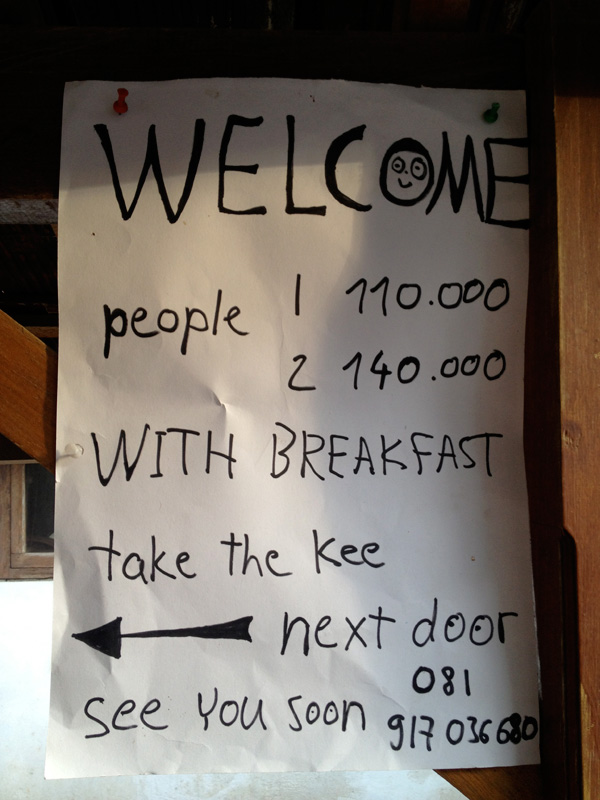 WELCOME
people 1 110.000
2 140.000
WITH BREAKFAST
take the kee
next door
081
see you soon 917 036680